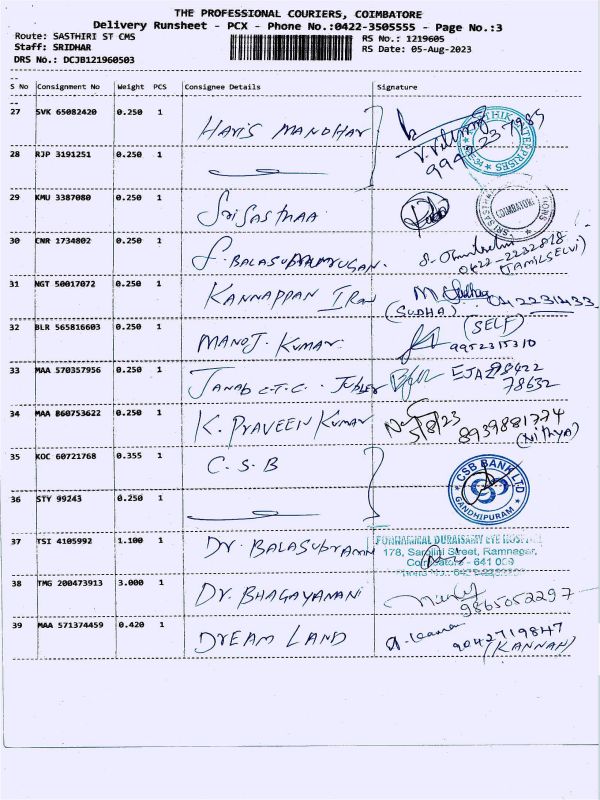 THE PROFESSIONAL COURIERS, COIMBATORE
Delivery Runsheet - PCX - Phone No.:0422-3505555 - Page No.:3
Route: SASTHIRI ST CMS
Staff: SRIDHAR
DRS No.: DCJB121960503
RS No.: 1219605
RS Date: 05-Aug-2023
S No Consignment No Weight PCS Consignee Details Signature
27 SVK 65082420 0.250 1 HARIS MANOHAR
9942237985
28 RJP 3191251 0.250 1
29 KMU 3387080 0.250 1 Sri Sasthaa
COIMBATORE
30 CNR 1734802 0.250 1 S. BALASUBRAMURUGAN.
0422-2232818
(TAMILSELVI)
31 NGT 50017072 0.250 1 KANNAPPAN IRON
(SUDHA) 0422231433
32 BLR 565816603 0.250 1 MANOJ. KUMAR.
(SELF)
9952315310
33 MAA 570357956 0.250 1 JANAB C.T.C. EJAZ 98422
78632
34 MAA 860753622 0.250 1 K. PRAVEEN KUMAR
5/8/23 8939881774
(Nithya)
35 KOC 60721768 0.355 1 C.S.B
CSB BANK LTD
GANDHIPURAM
36 STY 99243 0.250 1
37 TSI 4105992 1.100 1 Dr. BALASUBRAMN
PONNAMMAL DURAISAMY EYE HOSPITAL
178, Sarojini Street, Ramnagar,
Coimbatore - 641 009
38 TMG 200473913 3.000 1 Dr. BHAGAYANANI
9865052297
39 MAA 571374459 0.420 1 DREAM LAND
9042719847
(KANNAN)